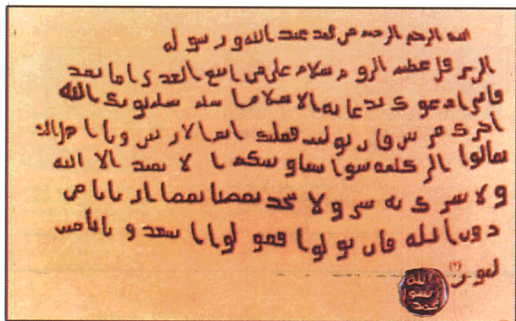 الرحمن الرحيم من محمد عبد الله ورسوله
الى هرقل عظيم الروم سلام على من اتبع الهدى اما بعد
فاني ادعوك بدعاية الاسلام اسلم تسلم يوتك الله
اجرك مرتين فان توليت فعليك اثم الاريسين ويا اهل
تعالوا الى كلمة سوا بيننا وبينكم ا لا نعبد الا الله
ولا نشرك به ولا يتخذ بعضنا بعضا اربابا من
دون الله فان تولوا فقولوا اشهدوا بانا مس
لمون (٢)
الله
رسول
محمد